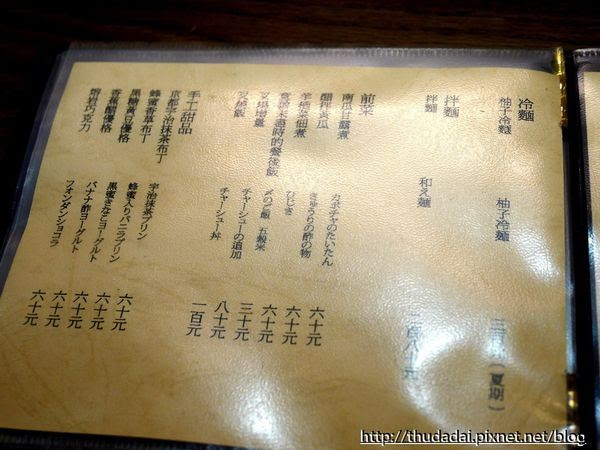 冷麵
柚子冷麵 柚子冷麵 (夏期)
拌麵
拌麵 和え麺 二百八十元
前菜
南瓜甘露煮 カボチャのたいたん 六十元
醋拌黃瓜 きゅうりの酢の物 六十元
羊栖菜佃煮 ひじき 六十元
意猶未盡時的餐後飯 〆のご飯 五穀米 三十元
叉燒增量 チャーシューの追加 八十元
叉燒飯 チャーシュー丼 一百元
手工甜品
京都宇治抹茶布丁 宇治抹茶プリン 六十元
蜂蜜香草布丁 蜂蜜入りバニラプリン 六十元
黑糖黃豆優格 黒蜜きなこヨーグルト 六十元
香蕉醋優格 バナナ酢ヨーグルト 六十元
熔岩巧克力 フォンダンショコラ 六十元
http://thudadai.pixnet.net/blog